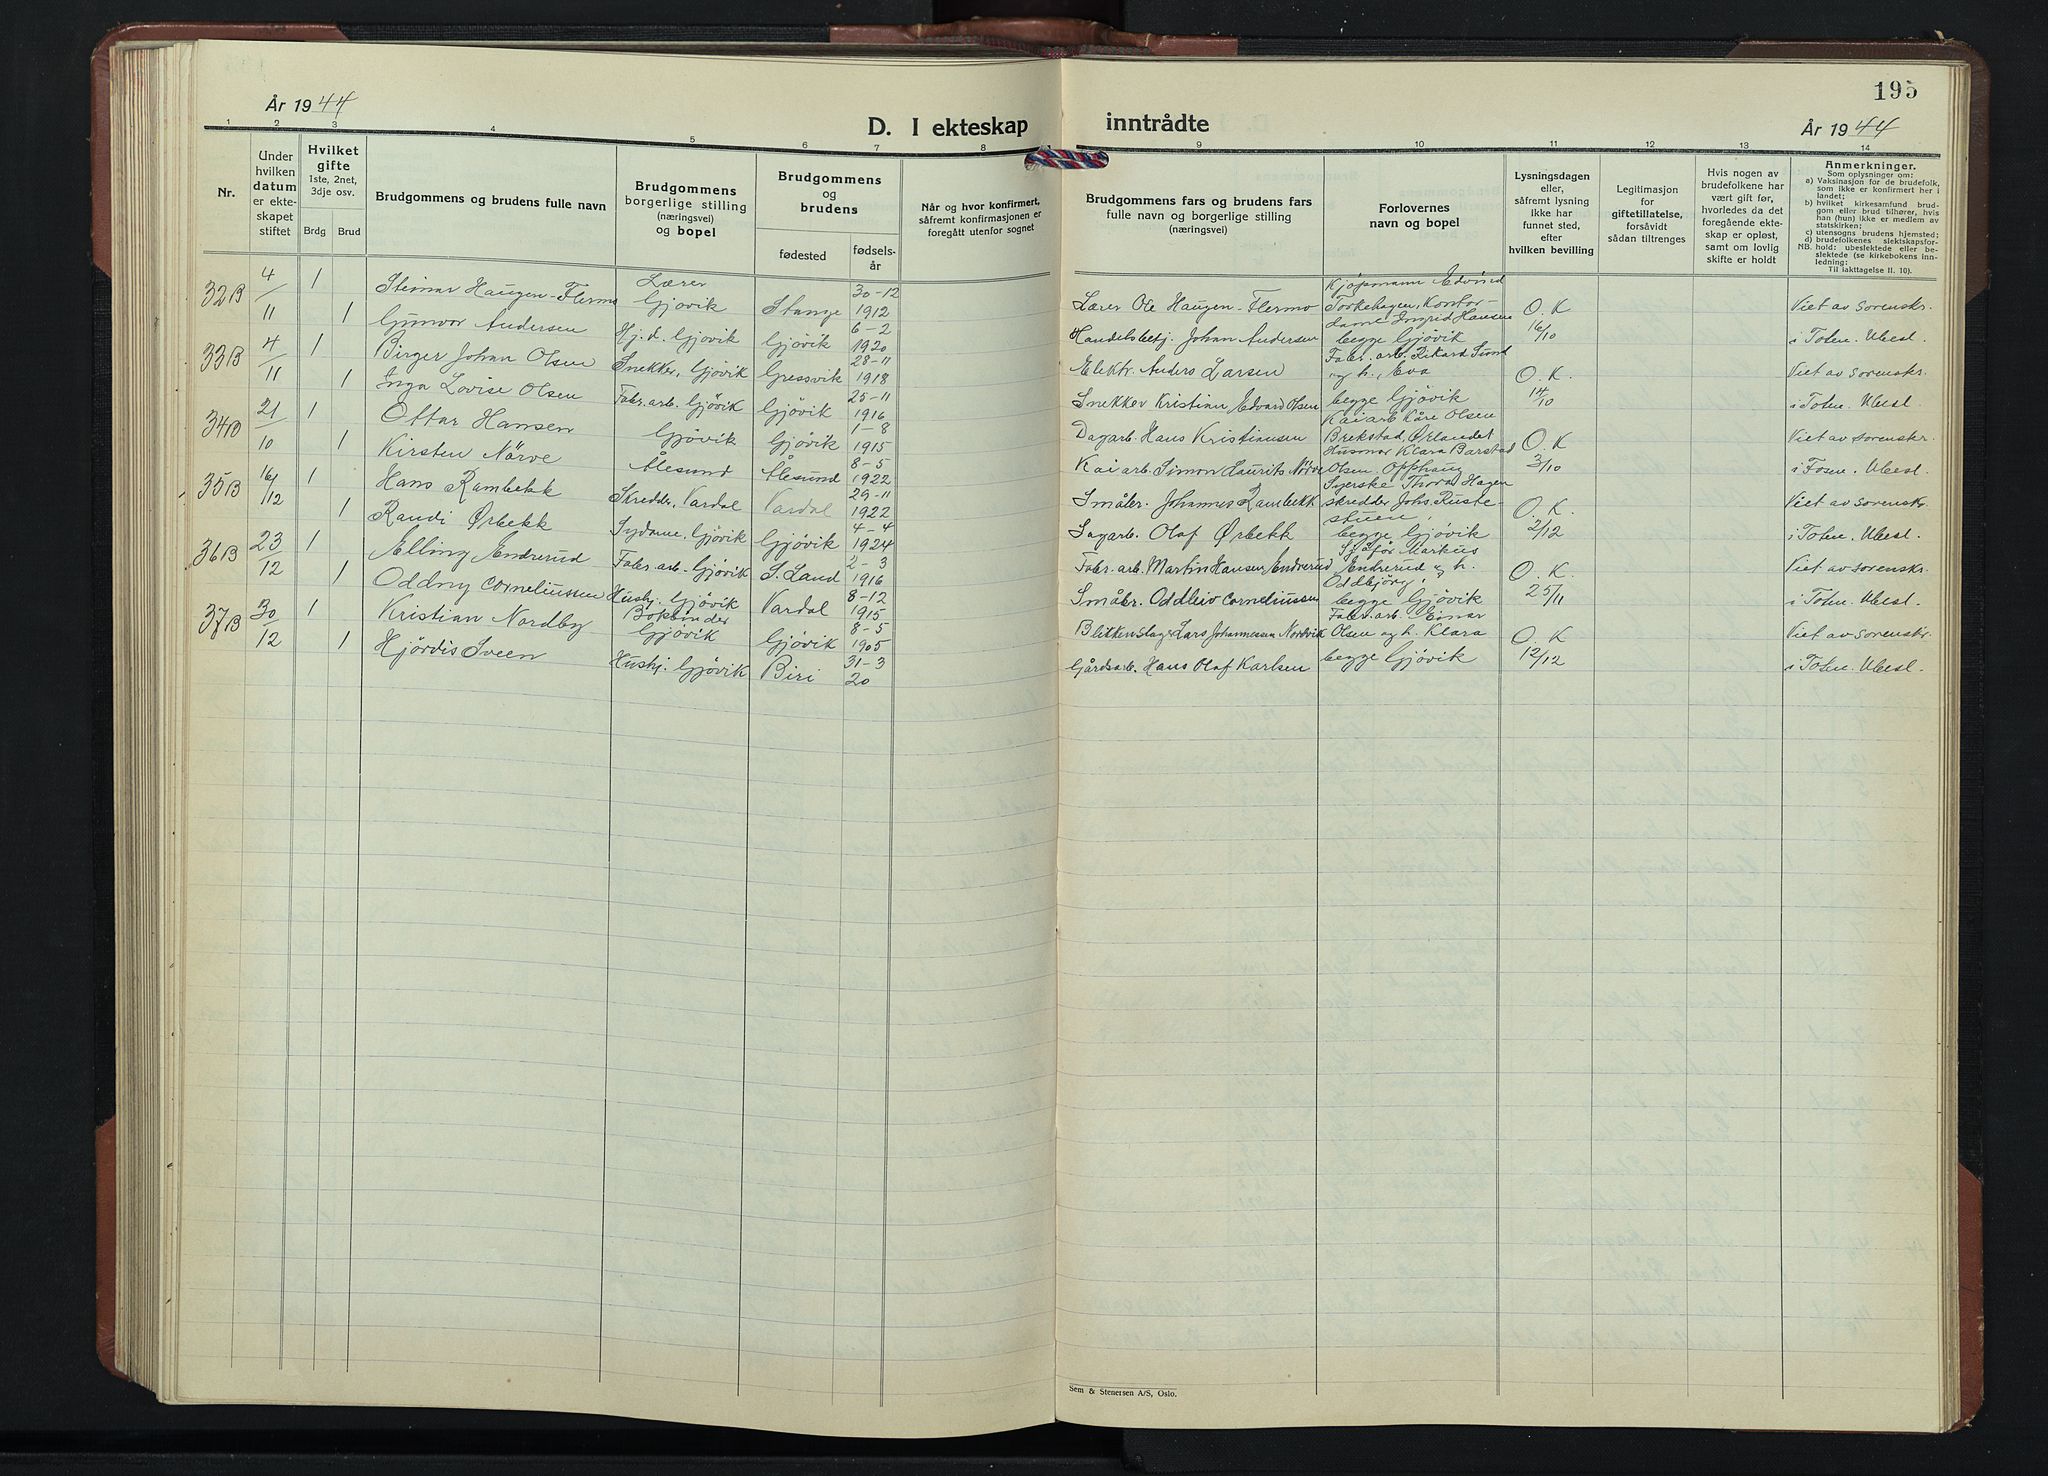 195
År 1944
D. I ekteskap inntrådte
År 1944
1 2 3 4 5 6 7 8 9 10 11 12 13 14
Nr.
Under hvilken datum er ekteskapet stiftet
Hvilket gifte
1ste, 2net, 3dje osv.
Brdg Brud
Brudgommens og brudens fulle navn
Brudgommens borgerlige stilling (næringsvei) og bopel
Brudgommens og brudens
fødested
fødselsår
Når og hvor konfirmert, såfremt konfirmasjonen er foregått utenfor sognet
Brudgommens fars og brudens fars fulle navn og borgerlige stilling (næringsvei)
Forlovernes navn og bopel
Lysningsdagen eller, såfremt lysning ikke har funnet sted, efter hvilken bevilling
Legitimasjon for giftetillatelse, forsåvidt sådan tiltrenges
Hvis nogen av brudefolkene har vært gift før, hvorledes da det foregående ekteskap er opløst, samt om lovlig skifte er holdt
Anmerkninger.
Som oplysninger om:
a) Vaksinasjon for de brudefolk, som ikke er konfirmert her i landet;
b) hvilket kirkesamfund brudgom eller brud tilhører, hvis han (hun) ikke er medlem av statskirken;
c) utensogns brudens hjemsted;
d) brudefolkenes slektskapsforhold: ubeslektede eller beslektede (se kirkebokens innledning:
NB.
Til iakttagelse II. 10).
32B 4/11 1 Steinar Haugen-Flermo Lærer Gjøvik Stange 30-12 1912 Lærer Ole Haugen-Flermo Kjøpmann Edvind Torkehagen, Kontordame Ingrid Hansen begge Gjøvik O.K 16/10 Viet av sorenskr. i Toten. Ubesl.
1 Gunvor Andersen Hj.d. Gjøvik Gjøvik 6-2 1920 Handelsbetj. Johan Andersen
33B 4/11 1 Birger Johan Olsen Snekker, Gjøvik Gressvik 28-11 1918 Elektr. Anders Larsen Fabr. arb. Rikard Sund og h. Eva begge Gjøvik O.K. 14/10 Viet av sorenskr. i Toten. Ubesl.
1 Inga Lovise Olsen Fabr. arb. Gjøvik Gjøvik 25-11 1916 Snekker Kristian Edvard Olsen
34B 21/10 1 Ottar Hansen Gjøvik Gjøvik 1-8 1915 Dagarb. Hans Kristiansen Kaiarb Kåre Olsen Brekstad, Ørlandet Husmor Klara Barstad Olsen. Opphaug O.K 3/10 Viet av sorenskr. i Fosen. Ubesl.
1 Kirsten Nörve Ålesund Ålesund 8-5 1922 Kaiarb. Simon Laurits Nörve
35B 16/12 1 Hans Rambekk Skredder, Vardal Vardal 29-11 1922 Småbr. Johannes Rambekk Syerske Thora Hagen skredder Johs. Rustestuen, begge Gjøvik O.K. 2/12 Viet av sorenskr. i Toten. Ubesl.
1 Randi Ørbekk Sydame Gjøvik Gjøvik 4-4 1924 Sagarb. Olaf Ørbekk
36B 23/12 1 Elling Endrerud Fabr. arb. Gjøvik S. Land 2-3 1916 Fabr. arb. Martin Hansen Endrerud Markus Endrerud og h. Oddbjörg, begge Gjøvik O.K. 25/11 Viet av sorenskr. i Toten. Ubesl.
1 Oddny Corneliussen Hushj. Gjøvik Vardal 8-12 1915 Småbr. Oddleiv Corneliussen
37B 30/12 1 Kristian Nordby Bokbinder Gjøvik Gjøvik 8-5 1905 Blikkenslager Lars Johannessen Nordvik Fabr. arb. Einar Olsen og h. Klara begge Gjøvik O.K 12/12 Viet av sorenskr. i Toten. Ubesl.
1 Hjördis Sveen Hushj. Gjøvik Biri 31-3 20 Gårdsarb. Hans Olaf Karlsen
Sem & Stenersen A/S, Oslo.